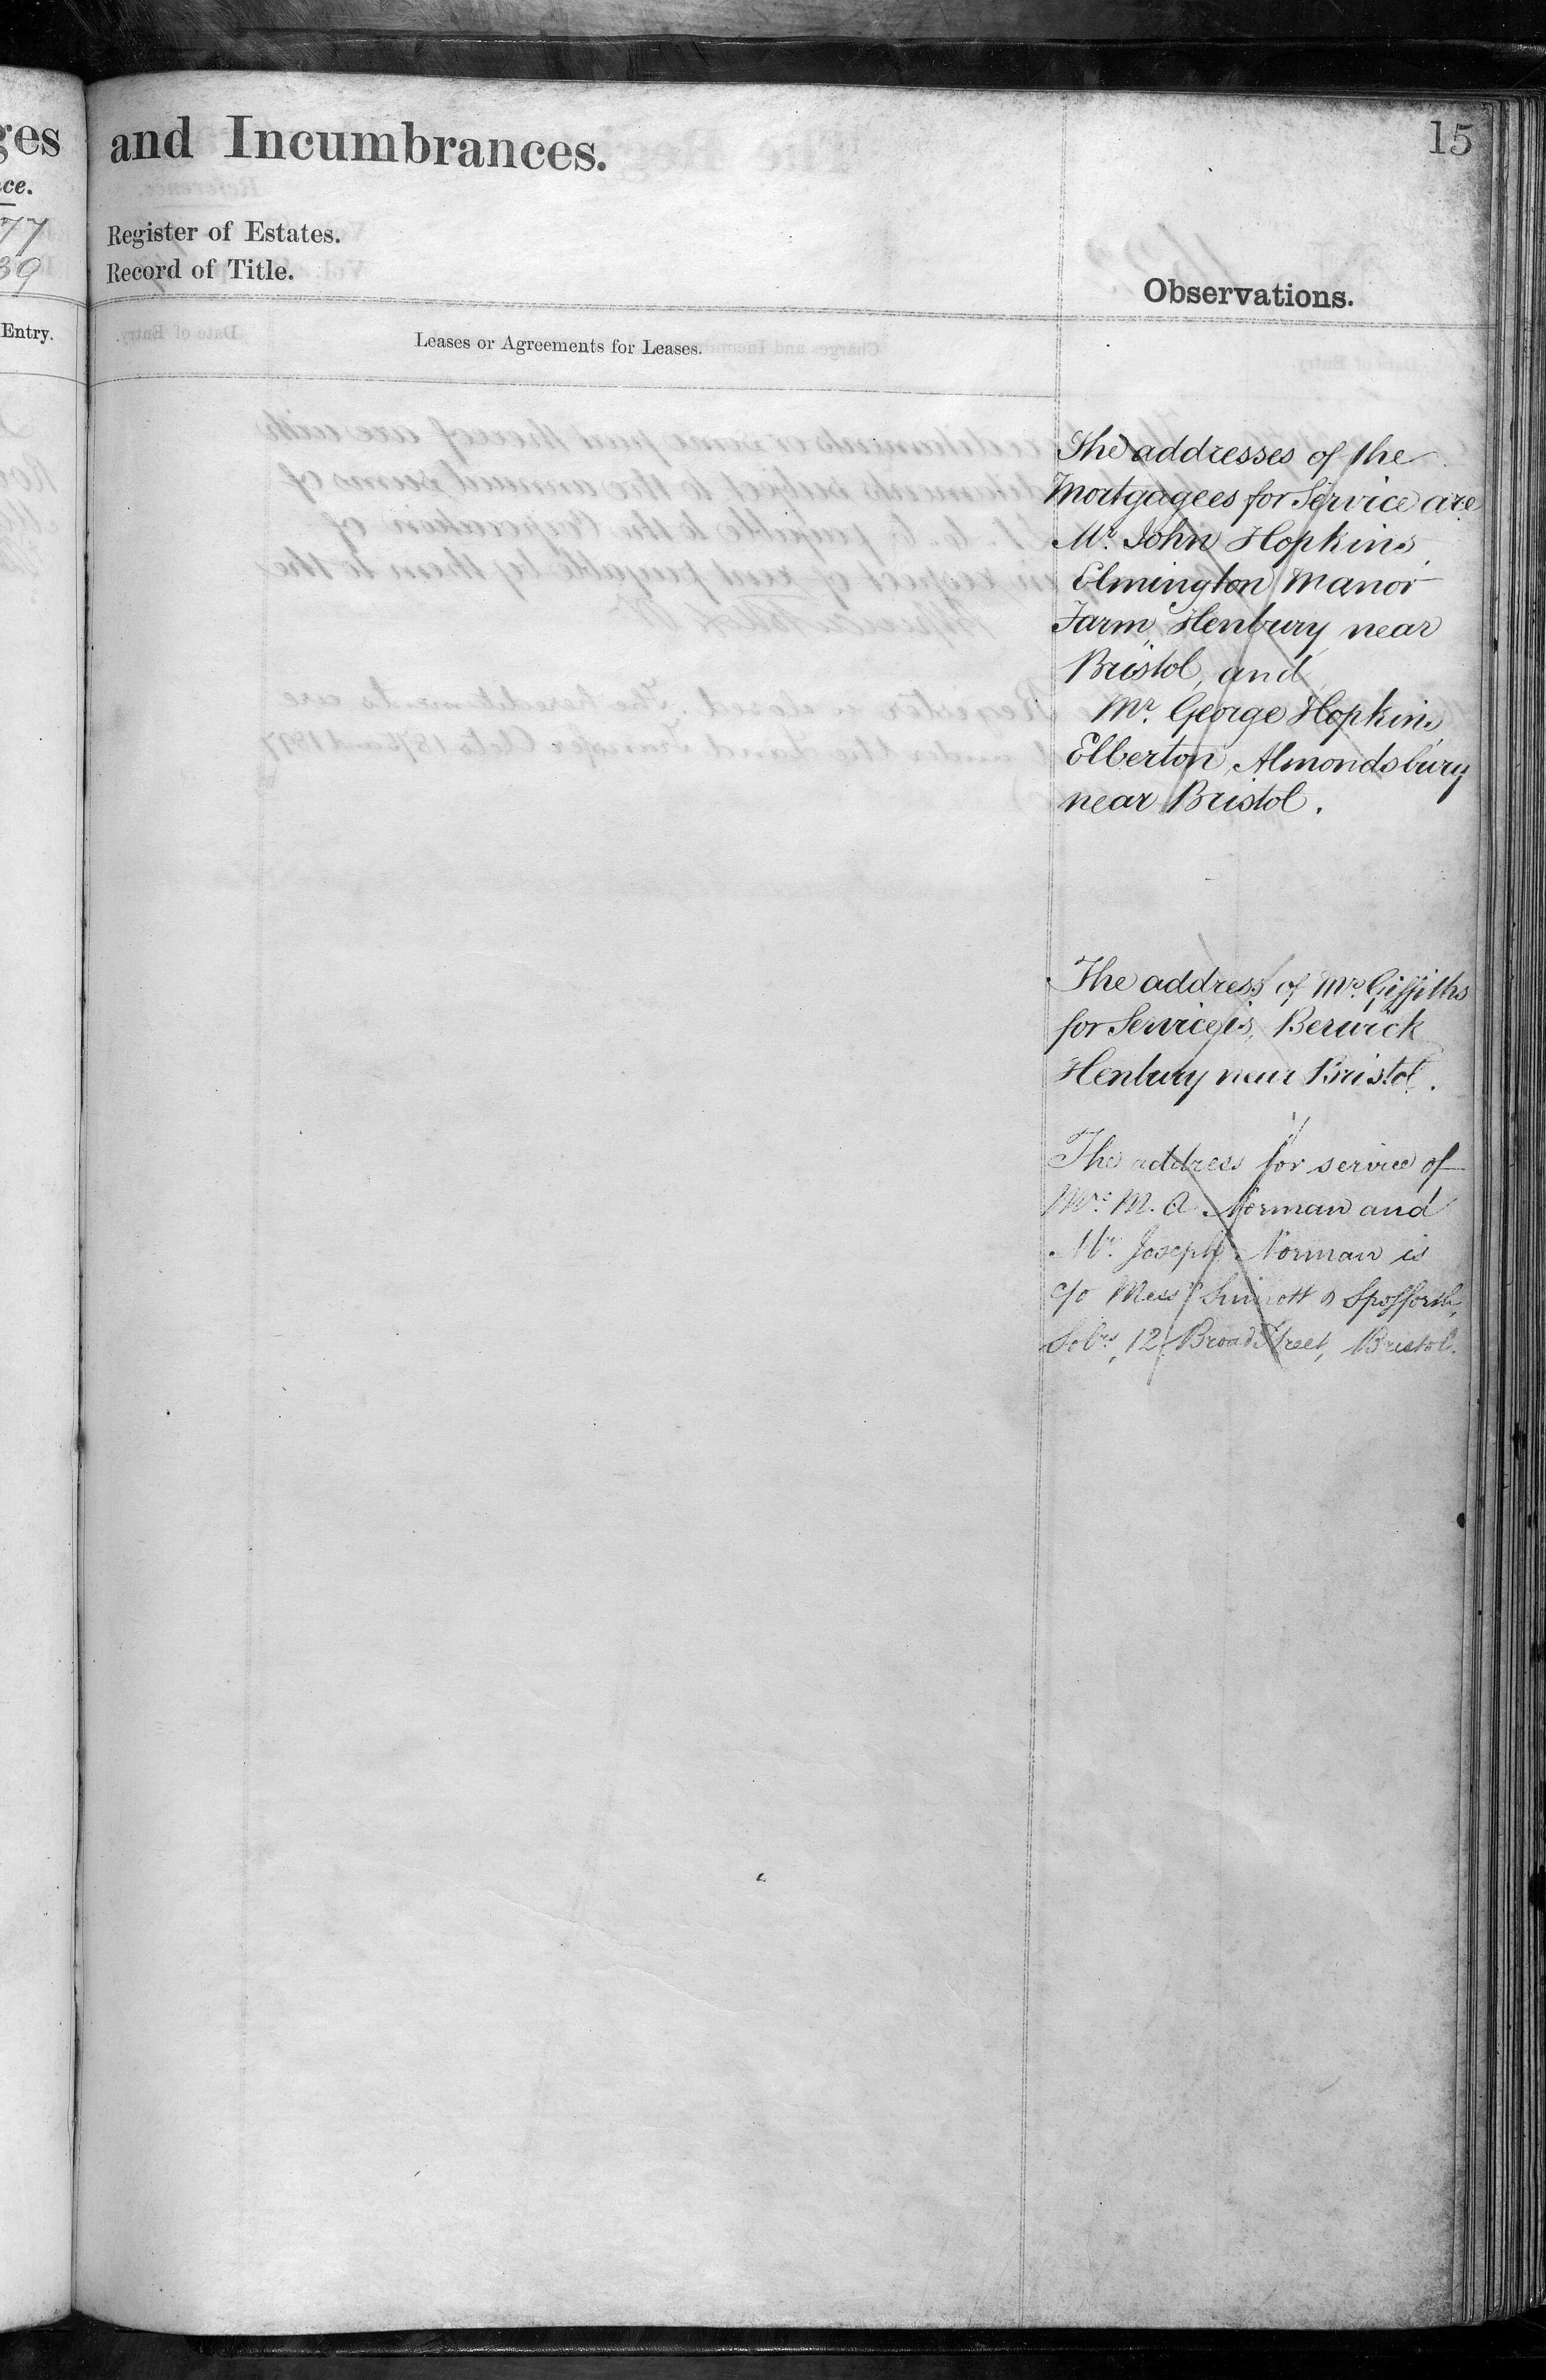 ges
ce.
77
39
Entry.
15
and Incumbrances.
Register of Estates.
Record of Title.
Observations.
Leases or Agreements for Leases.
The addresses of the
Mortgagees for Service are
Mr. John Hopkins
Elmington Manor
Farm Henbury near
Bristol, and
Mr. George Hopkins
Elberton, Almondsbury
near Bristol.
The address of Mr. Griffiths
for Service is, Berwick
Henbury near Bristol.
The address for service of
Mrs. M. A. Norman and
Mr. Joseph Norman is
c/o Messrs Sinnott & Spofforth,
Solrs, 12 Broad Street, Bristol.